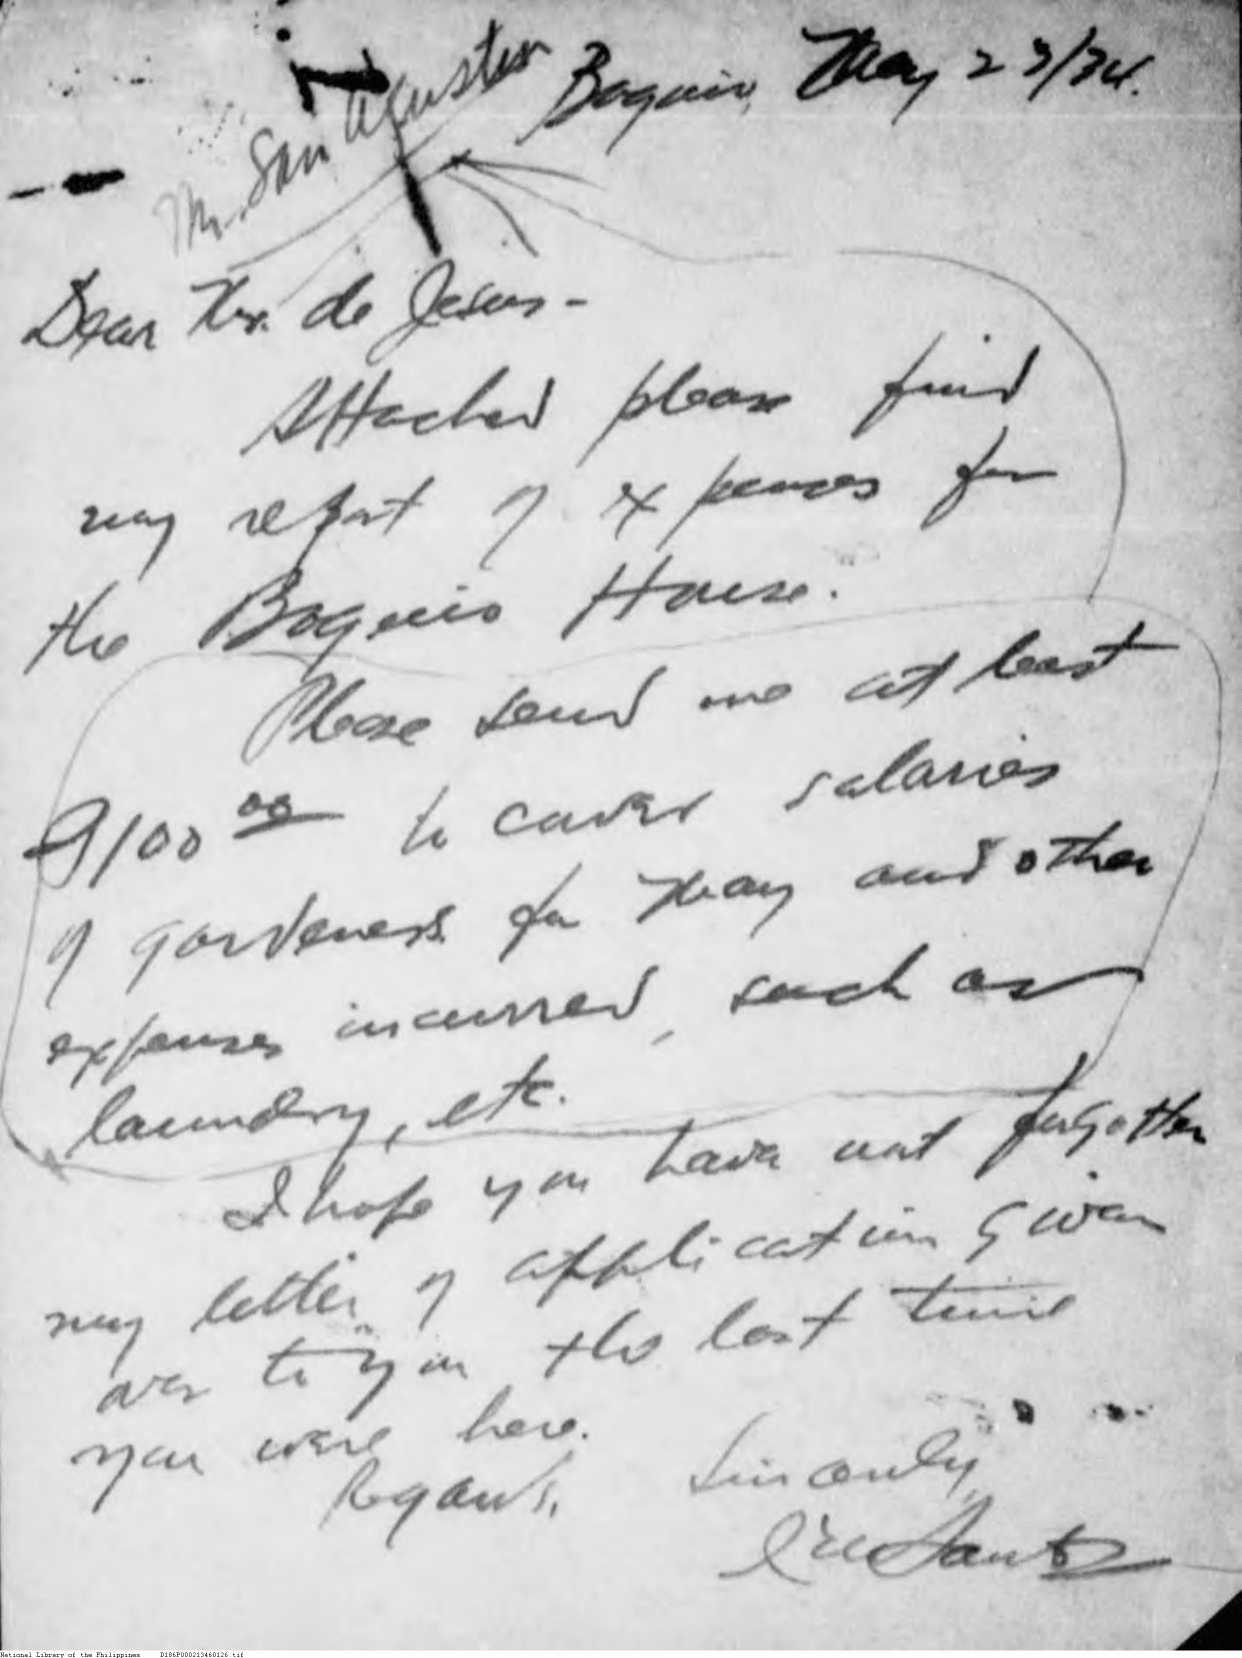 Mr. San Agustin
Baguio, May 23/34.
Dear Mr. de Jesus -
Attached please find
my report of expenses for
the Baguio House.
Please send me at least
₱100 00 to cover salaries
of gardeners for May and other
expenses incurred, such as
laundry, etc.
I hope you have not forgotten
my letter of application given
over to you the last time
you were here.
Regards.
Sincerely,
Santos
National Library of the Philippines D186P000213460126.tif